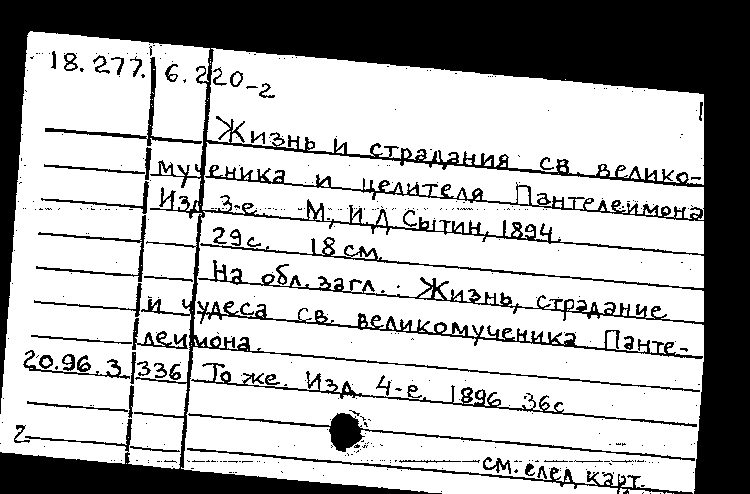 18.277. 6.220-2
Жизнь и страдания св. велико-
мученика и целителя Пантелеимона
Изд 3-е. М., И.Д Сытин, 1894.
29с. 18 см.
На обл. загл.: Жизнь, страдание
и чудеса св. великомученика Панте-
леимона.
20.96.3.336 То же. Изд 4-е. 1896 36с
2-
см. след карт.